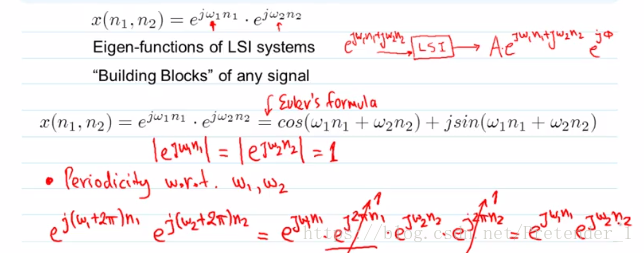 x(n₁, n₂) = e^{jω₁n₁} · e^{jω₂n₂}
Eigen-functions of LSI systems e^{jω₁n₁+jω₂n₂} → LSI → A·e^{jω₁n₁+jω₂n₂} e^{jΦ}
"Building Blocks" of any signal
Euler's formula
x(n₁, n₂) = e^{jω₁n₁} · e^{jω₂n₂} = cos(ω₁n₁ + ω₂n₂) + jsin(ω₁n₁ + ω₂n₂)
|e^{jω₁n₁}| = |e^{jω₂n₂}| = 1
• Periodicity w.r.t. ω₁, ω₂
1 1
e^{j(ω₁+2π)n₁} e^{j(ω₂+2π)n₂} = e^{jω₁n₁} · e^{j2πn₁} · e^{jω₂n₂} · e^{j2πn₂} = e^{jω₁n₁} e^{jω₂n₂}
https://blog.csdn.net/Pretender_1